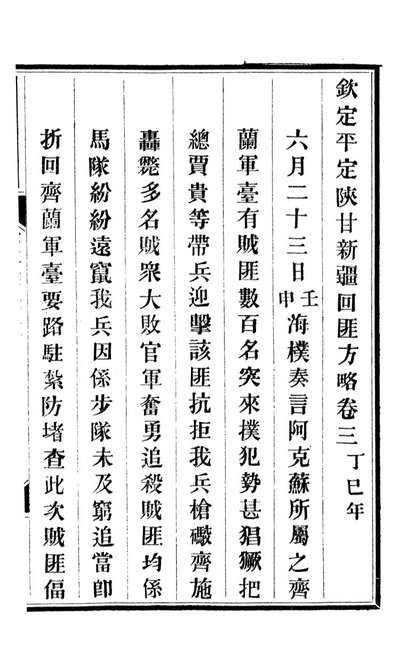 欽定平定陝甘新疆回匪方略卷三丁巳年
六月二十三日壬申海樸奏言阿克蘇所屬之齊
蘭軍臺有賊匪數百名突來撲犯勢甚猖獗把
總賈貴等帶兵迎擊該匪抗拒我兵槍礮齊施
轟斃多名賊衆大敗官軍奮勇追殺賊匪均係
馬隊紛紛遠竄我兵因係步隊未及窮追當卽
折回齊蘭軍臺要路駐紮防堵查此次賊匪偪